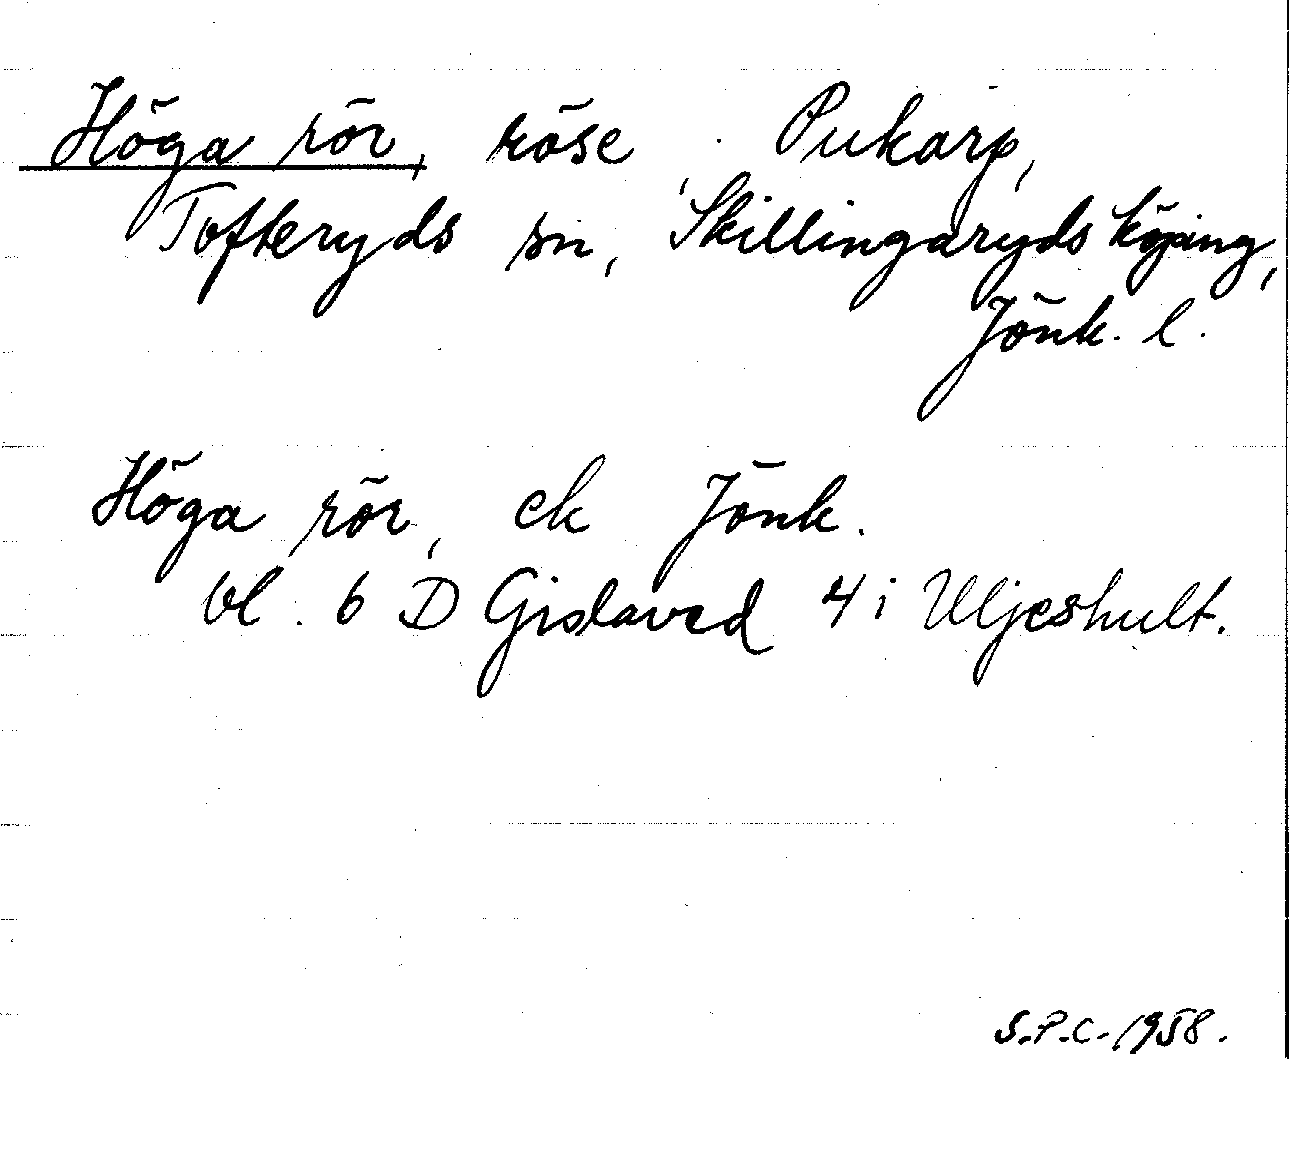 Höga rör, röse, Pukarp,
Tofteryds sn, Skillingaryds köping,
Jönk. l.
Höga rör, ek Jönk.
bl. 6 D Gislaved 4 i Uljeshult.
S.P.C. 1958.